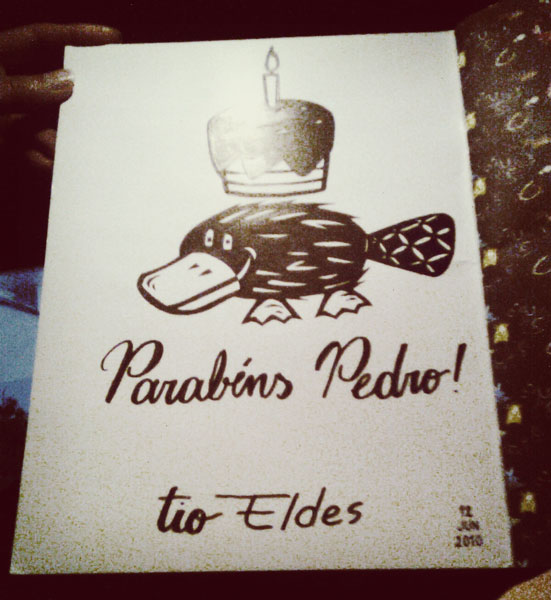 Parabéns Pedro!
tio Eldes
12
JUN
2010